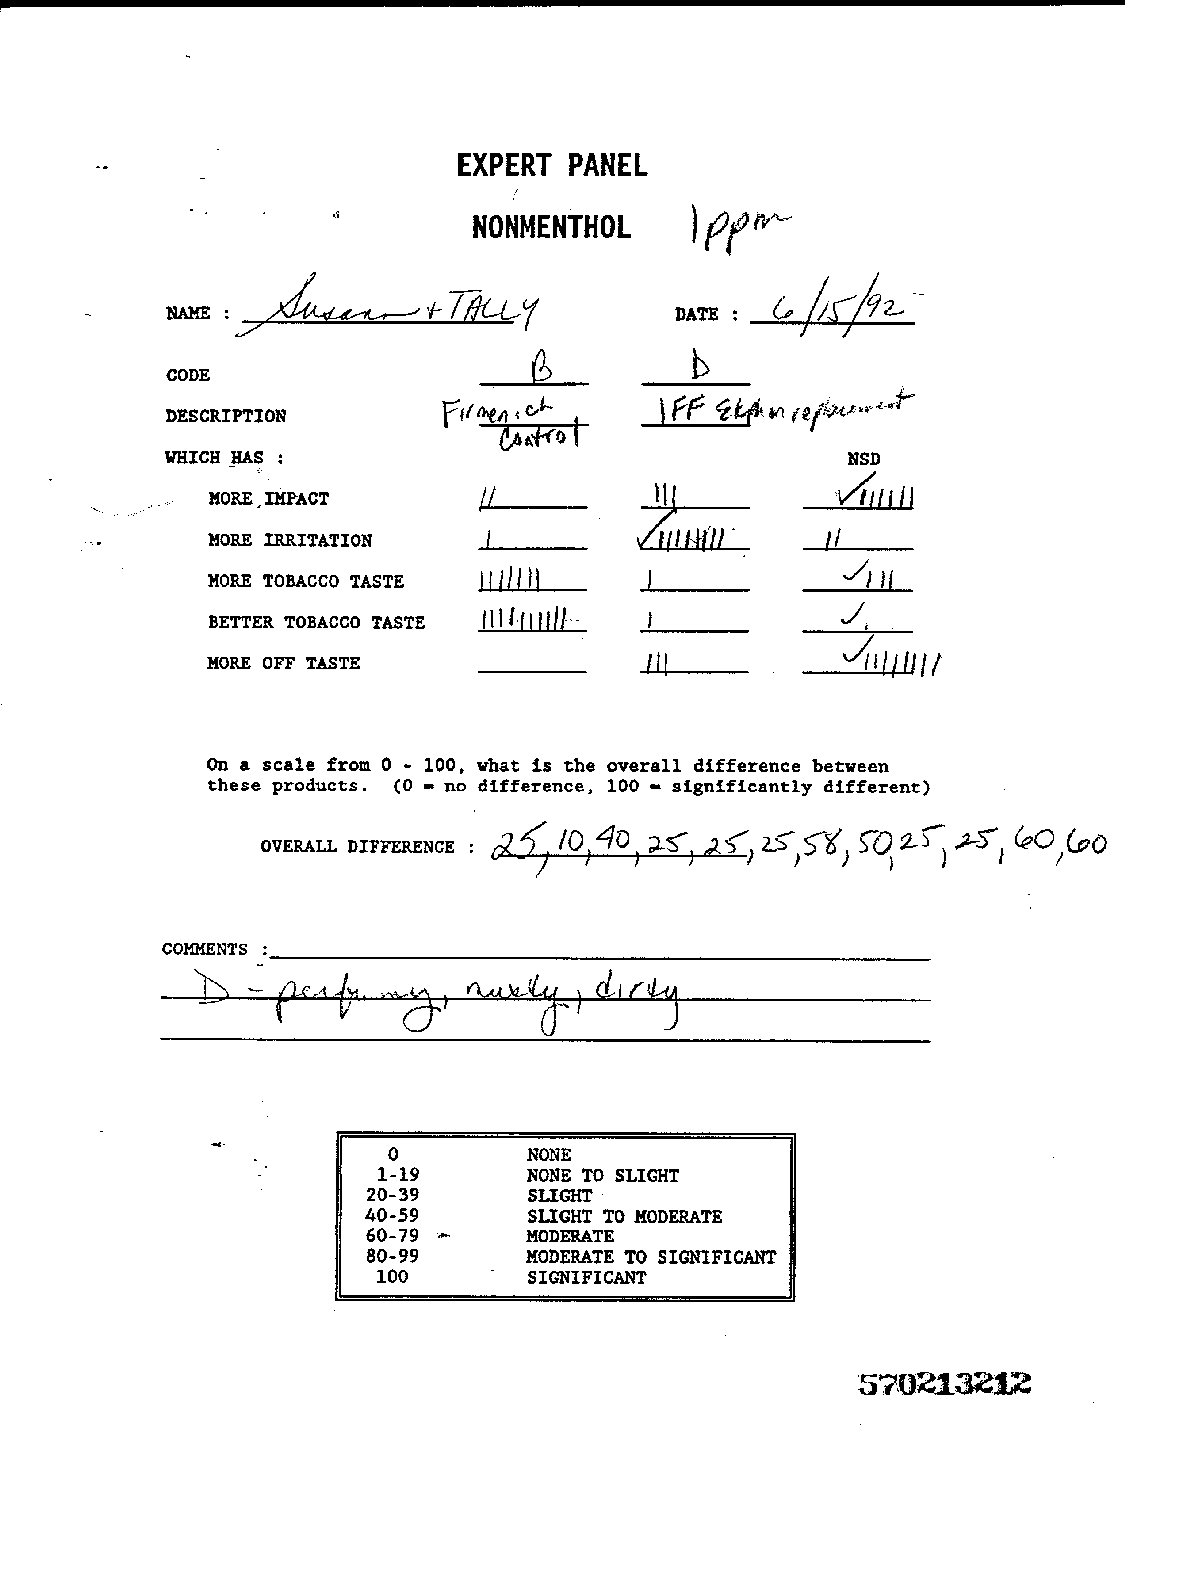 EXPERT PANEL
NONMENTHOL 1ppm
NAME : Susan + TALLY DATE : 6/15/92
CODE B D
DESCRIPTION Firmenich Control IFF replacement
WHICH HAS : NSD
MORE IMPACT || ||| ✓||||||
MORE IRRITATION | ✓|||||||| ||
MORE TOBACCO TASTE ||||||| | ✓|||
BETTER TOBACCO TASTE |||||||||| | ✓
MORE OFF TASTE ||| ✓||||||||
On a scale from 0 - 100, what is the overall difference between
these products. (0 = no difference, 100 = significantly different)
OVERALL DIFFERENCE : 25, 10, 40, 25, 25, 25, 58, 50, 25, 25, 60, 60
COMMENTS :
D - perfumy, musty, dirty
0 NONE
1-19 NONE TO SLIGHT
20-39 SLIGHT
40-59 SLIGHT TO MODERATE
60-79 MODERATE
80-99 MODERATE TO SIGNIFICANT
100 SIGNIFICANT
570213212